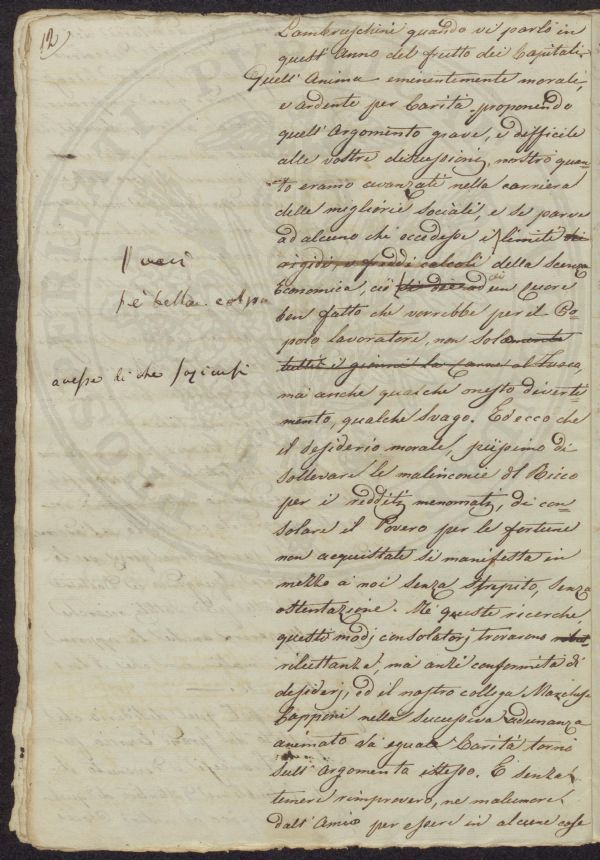 12)
Lambruschini quando vi parlò in
quest' Anno del frutto dei Capitali.
Quell' Anima eminentemente morale,
e ardente per Carità proponendo
quell' Argomento grave, e difficile
alle vostre discussioni, mostrò quan-
to eramo avanzati nella carriera
delle migliorie sociali, e se parve
ad alcuno che eccedesse i limiti dei
rigidi, e freddi calcoli della Scienza
Economica, ciò ad un Cuore
ben fatto che vorrebbe per il Po-
polo lavoratore, non solamente
tutti i giorni la carne al fuoco,
mà anche qualche onesto diverti-
mento, qualche svago. Ed ecco che
il desiderio morale, piissimo di
sollevare le malinconie del Ricco
per i redditi menomati, di con-
solare il Povero per le fortune
non acquistate si manifesta in
mezzo a noi senza strepito, senza
ostentazione. Nè queste ricerche,
questi modi consolatorj trovarono
riluttanza, mà anzi conformità di
desiderj, ed il nostro collega Marchese
Capponi nella successiva adunanza
animato da eguale Carità tornò
sull' Argomento istesso. E senza
temere rimprovero, nè malumore
dall' Amico per essere in alcune cose
per bella colpa
avesse di che